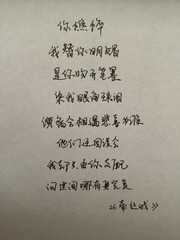 你憔悴
我替你明媚
是你吻开笔墨
染我眼角珠泪
演离合相遇悲喜为谁
他们迂回误会
我却只由你支配
问世间哪有更完美
《牵丝戏》